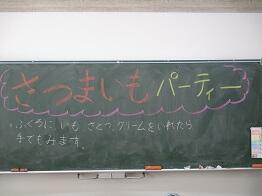 さつまいもパーティー
・ふくろに いも、さとう、クリームをいれたら
手でもみます。